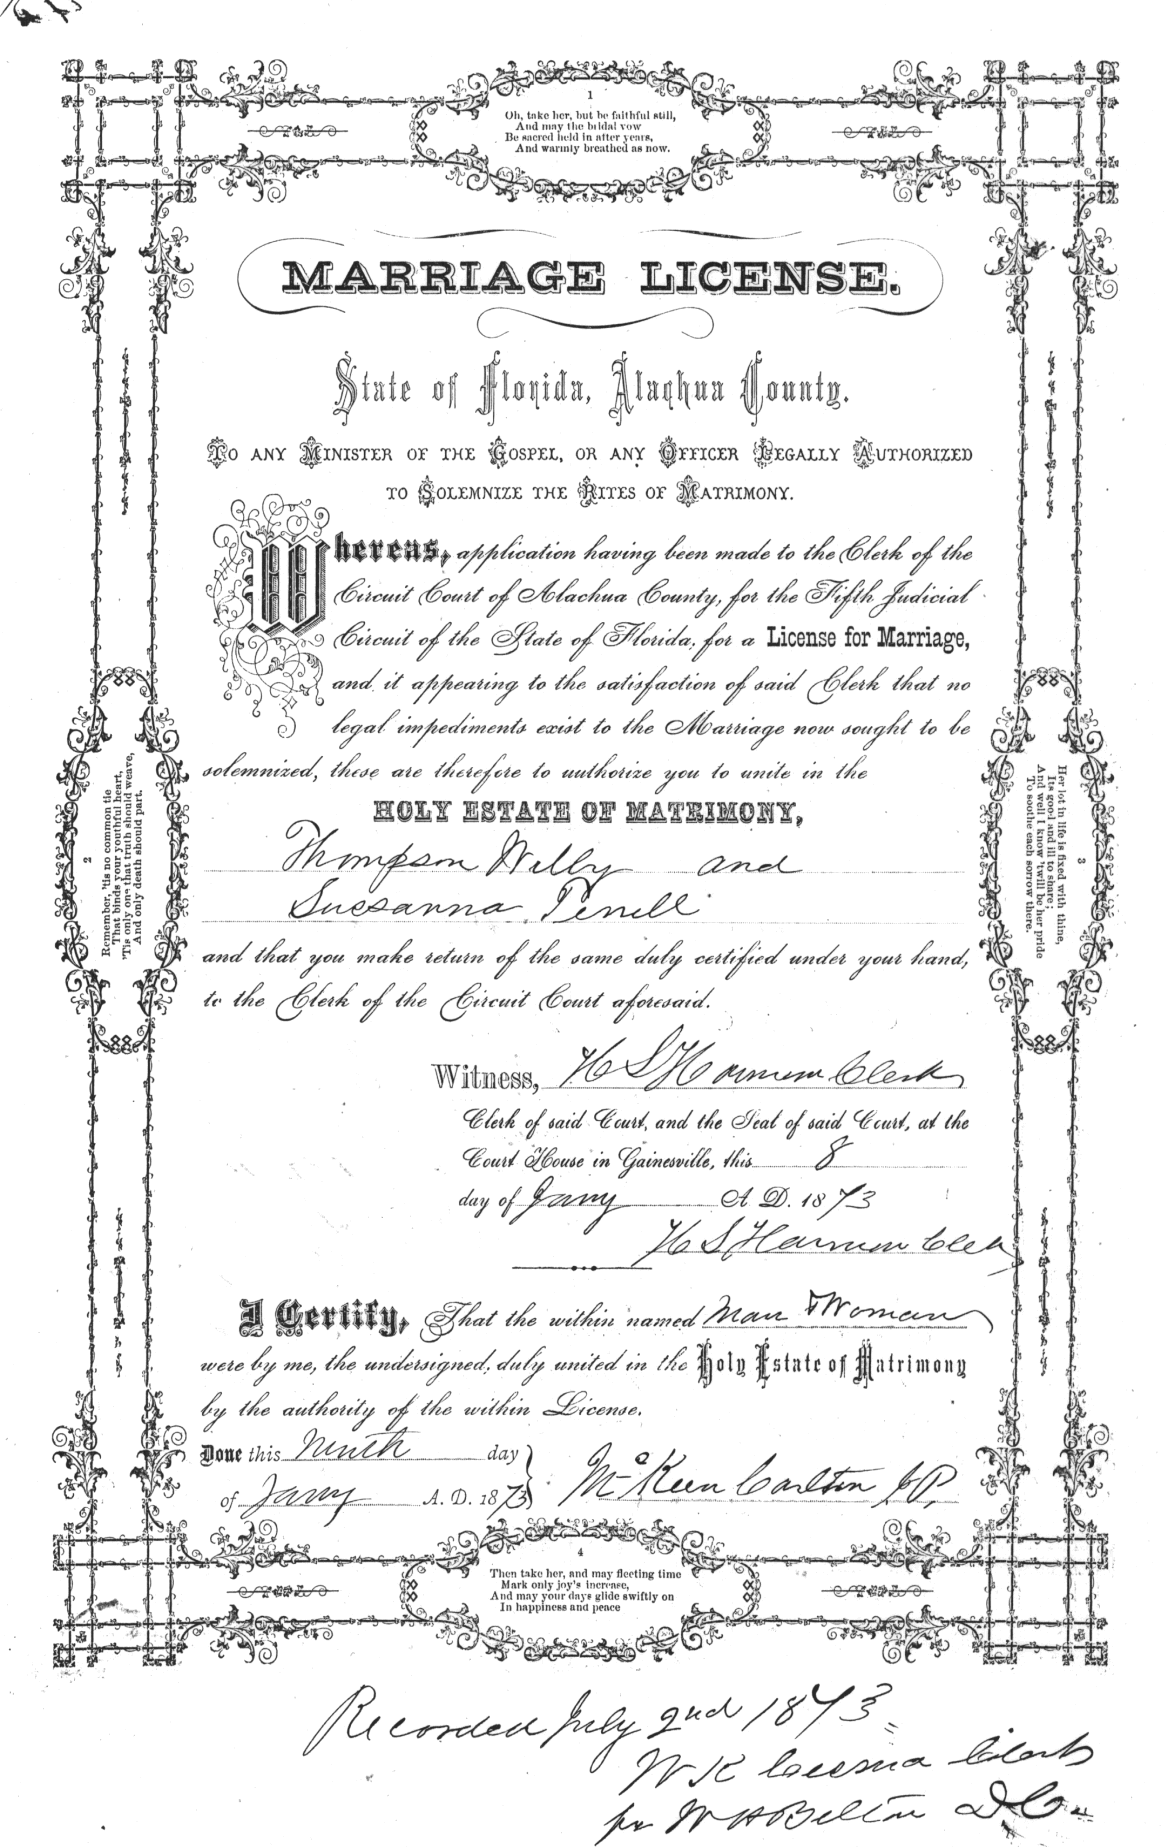 1
Oh, take her, but be faithful still,
And may the bridal vow
Be sacred held in after years,
And warmly breathed as now.
MARRIAGE LICENSE.
State of Florida, Alachua County.
TO ANY MINISTER OF THE GOSPEL, OR ANY OFFICER LEGALLY AUTHORIZED
TO SOLEMNIZE THE RITES OF MATRIMONY.
Whereas, application having been made to the Clerk of the
Circuit Court of Alachua County, for the Fifth Judicial
Circuit of the State of Florida, for a License for Marriage,
and it appearing to the satisfaction of said Clerk that no
legal impediments exist to the Marriage now sought to be
solemnized, these are therefore to authorize you to unite in the
HOLY ESTATE OF MATRIMONY,
Thompson Willy and
Susanna
and that you make return of the same duly certified under your hand,
to the Clerk of the Circuit Court aforesaid.
Witness, H S Harmon Clerk
Clerk of said Court, and the Seal of said Court, at the
Court House in Gainesville, this 8
day of Jany A. D. 1873
H S Harmon Clerk
I Certify, That the within named Man & Woman
were by me, the undersigned, duly united in the Holy Estate of Matrimony
by the authority of the within License.
Done this Ninth day
of Jany A. D. 1873
McKeen Carlton JP.
2
Remember, 'tis no common tie
That binds your youthful heart,
'Tis only one that truth should weave,
And only death should part.
3
Her lot in life is fixed with thine,
Its good and ill to share;
And well I know 'twill be her pride
To soothe each sorrow there.
4
Then take her, and may fleeting time
Mark only joy's increase,
And may your days glide swiftly on
In happiness and peace
Recorded July 2nd 1873
W K Cessna Clerk
pr W H Belton D.C.